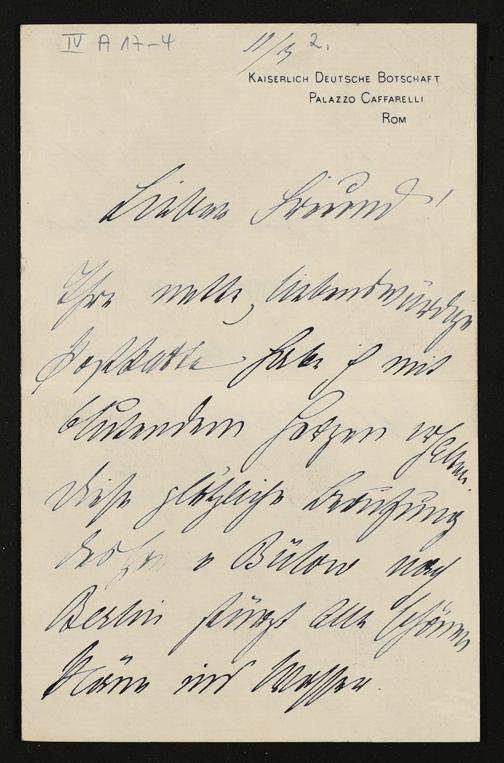 IV A 17-4
2.
KAISERLICH DEUTSCHE BOTSCHAFT
PALAZZO CAFFARELLI
ROM
Lieber Freund!
Ihre nette, liebenswürdige
Postkarte habe ich mit
blutendem Herzen erhalten.
Diese plötzliche Berufung
des v Bülow nach
Berlin stürzt alle schönen
Pläne ins Wasser.